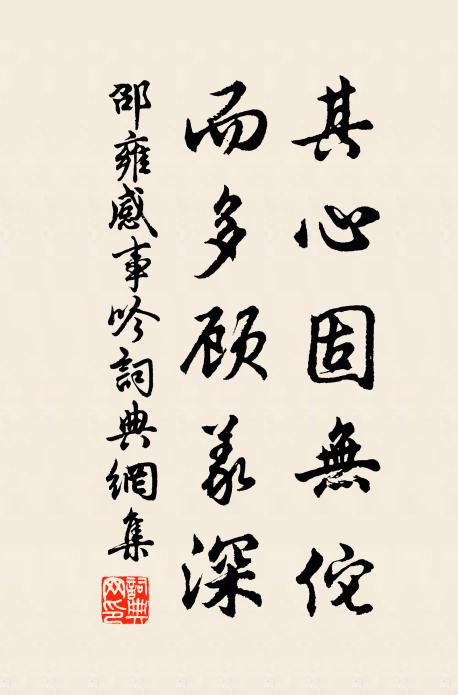 其心固無佗
而多顾義深
邵雍感事吟詞典網集
詞典網印